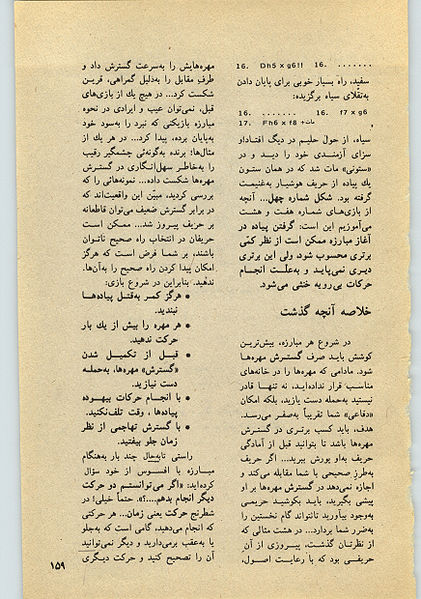 16. Dh5 x g6!! 16. .......
سفید، راه بسیار خوبی برای پایان دادن
به‌تقلای سیاه برگزیده:
16. ....... 16. f7 x g6
17. Fh6 x f8 +مات
سیاه، از حول حلیم در دیگ افتاد!و
سزای آزمندی خود را دید و در
«ستونی» مات شد که در همان ستون
یك پیاده از حریف هوشیار به‌غنیمت
گرفته بود. شکل شماره چهل... آنچه
از بازی‌های شماره هفت و هشت
می‌آموزیم این است: گرفتن پیاده در
آغاز مبارزه ممکن است از نظر کمّی
برتری محسوب شود، ولی این برتری
دیری نمی‌پاید و به‌علت انجام
حرکات بی‌رویه خنثی می‌شود.
خلاصه آنچه گذشت
در شروع هر مبارزه، بیش‌ترین
کوشش باید صرف گسترش مهره‌ها
شود. مادامی که مهره‌ها را در خانه‌های
مناسب قرار نداده‌اید، نه تنها قادر
نیستید به‌حمله دست یازید، بلکه امکان
«دفاعی» شما تقریباً به‌صفر می‌رسد.
هدف، باید کسب برتری در گسترش
مهره‌ها باشد تا بتوانید قبل از آمادگی
حریف به‌او یورش ببرید... اگر حریف
به‌طرز صحیحی با شما مقابله می‌کند و
اجازه نمی‌دهد در گسترش مهره‌ها بر او
پیشی بگیرید، باید بکوشید حریمی
به‌وجود بیآورید تانتواند گام نخستین را
به‌ضرر شما بردارد... در هشت مثالی که
از نظرتان گذشت، پیروزی از آن
حریفی بود که با رعایت اصول،
مهره‌هایش را به‌سرعت گسترش داد و
طرف مقابل را به‌دلیل گمراهی، قرین
شکست کرد... در هیچ یك از بازی‌های
قبل، نمی‌توان عیب و ایرادی در نحوه
مبارزه بازیکنی که نبرد را به‌سود خود
به‌پایان برده، پیدا کرد... در هر یك از
مثال‌ها؛ برنده به‌گونه‌ئی چشمگیر رقیب
را به‌خاطر سهل‌انگاری در گسترش
مهره‌ها شکست داده... نمونه‌هائی را که
بررسی کردید، مبیّن این واقعیت‌اند که
در برابر گسترش ضعیف می‌توان قاطعانه
بر حریف پیروز شد... ممکن است
حریفان در انتخاب راه صحیح ناتوان
باشند، بر شما فرض است که هرگز
امکان پیدا کردن راه صحیح را به‌آن‌ها،
ندهید. بنابراین در شروع بازی:
● هرگز کمر به‌قتل پیاده‌ها
نبندید.
● هر مهره را بیش از یك بار
حرکت ندهید.
● قبل از تکمیل شدن
«گسترش» مهره‌ها، به‌حمله
دست نیازید.
● با انجام حرکات بیهوده
پیاده‌ها، وقت تلف‌نکنید.
● با گسترش تهاجمی از نظر
زمان جلو بیفتید.
راستی تابه‌حال چند بار به‌هنگام
مبارزه با افسوس از خود سؤال
کرده‌اید: «اگر می‌توانستم دو حرکت
دیگر انجام بدهم....؟». حتماً خیلی؛ در
شطرنج حرکت یعنی زمان... هر حرکتی
که انجام می‌دهید، گامی است که به‌جلو
یا به‌عقب برمی‌دارید و دیگر نمی‌توانید
آن را تصحیح کنید و حرکت دیگری
۱۵۹